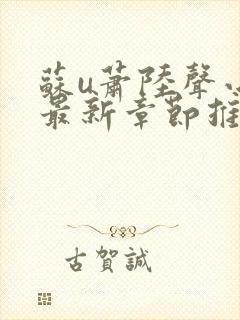 蘇u蕭陸聲
最新章節推
古賀誠